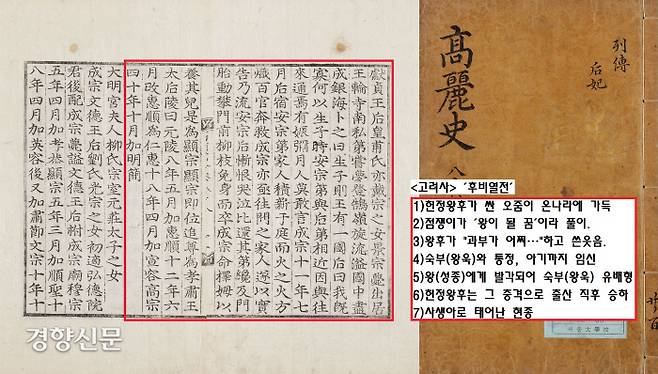 獻貞王后皇甫氏亦戴宗之女景宗薨出居
王輪寺南私第嘗夢登鵠嶺旋流溢國中盡
成銀海卜之曰生子則王有一國后曰我旣
寡何以生子時安宗第與后第相近因與往
來通焉有娠彌月人莫敢言成宗十一年七
月后宿安宗第家人積薪于庭而火之火方
熾百官奔救成宗亦亟往問之家人遂以實
告乃流安宗后慚恨哭泣比還其第纔及門
胎動攀門前柳枝免身而卒成宗命擇姆以
養其兒是爲顯宗顯宗卽位追尊爲孝肅王
太后陵曰元陵八年五月加惠順十二年六
月改惠順爲仁惠十八年四月加宣容高宗
四十年十月加明簡
大明宮夫人柳氏宗室元莊太子之女
成宗文德王后劉氏光宗之女初適弘德院
君後配成宗薨謚文德王后祔成宗廟穆宗
五年四月加孝恭顯宗五年三月加順聖十
八年四月加英容後又加肅節文宗十年十
경향신문
列傳
后妃
高麗史 八
<고려사> '후비열전'
1)헌정왕후가 싼 오줌이 온나라에 가득
2)점쟁이가 '왕이 될 꿈'이라 풀이.
3)왕후가 "과부가 어찌…"하고 쓴웃음.
4)숙부(왕욱)와 통정, 아기까지 임신
5)왕(성종)에게 발각되어 숙부(왕욱) 유배형
6)헌정왕후는 그 충격으로 출산 직후 승하
7)사생아로 태어난 현종